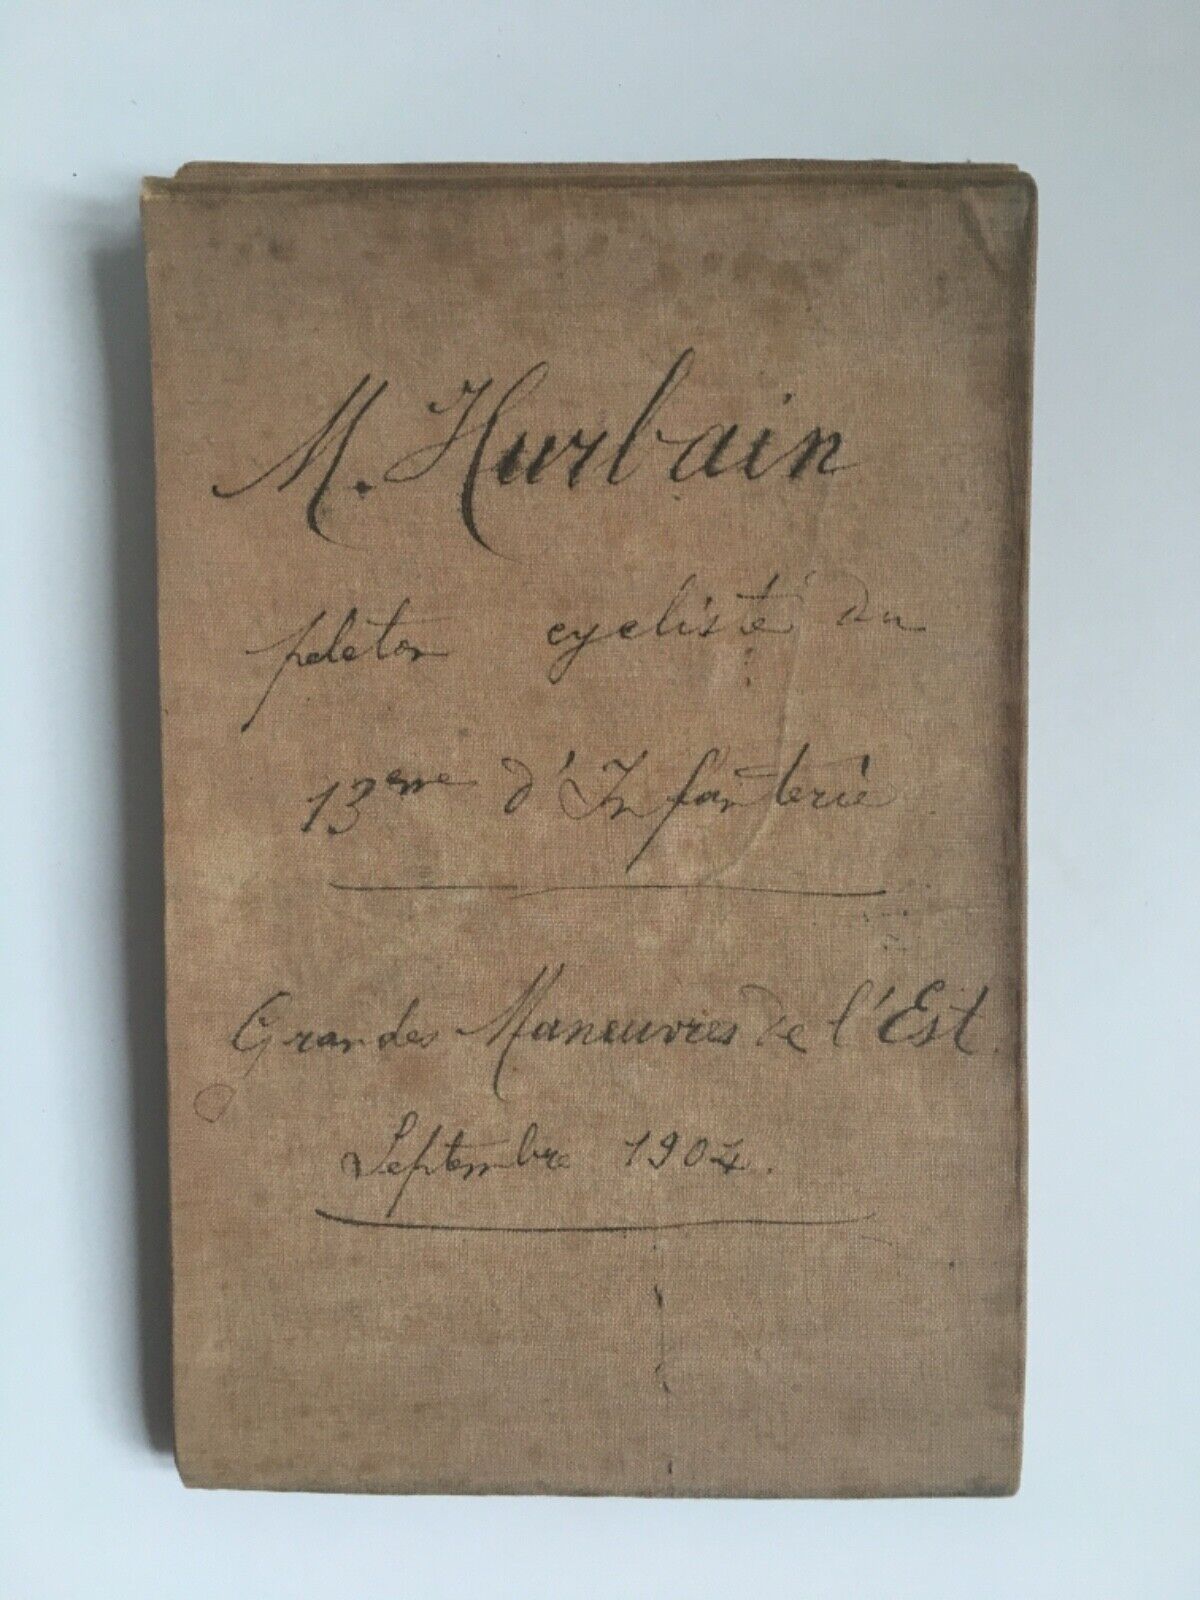 M. Hurbain
peleton cycliste du
13eme d'Infanterie
Grandes Maneuvres de l'Est.
Septembre 1904.